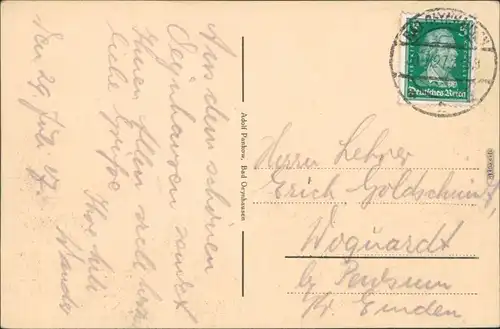 Den 29. Juli 27.
Aus dem schönen
Oeynhausen sendet
Ihnen allen viele herz
liche Grüße
Ihre
Adolf Pankow, Bad Oeynhausen
Deutsches Reich
Herrn Lehrer
Erich Goldschmidt
Woquardt
bg Pewsum
Kr. Emden